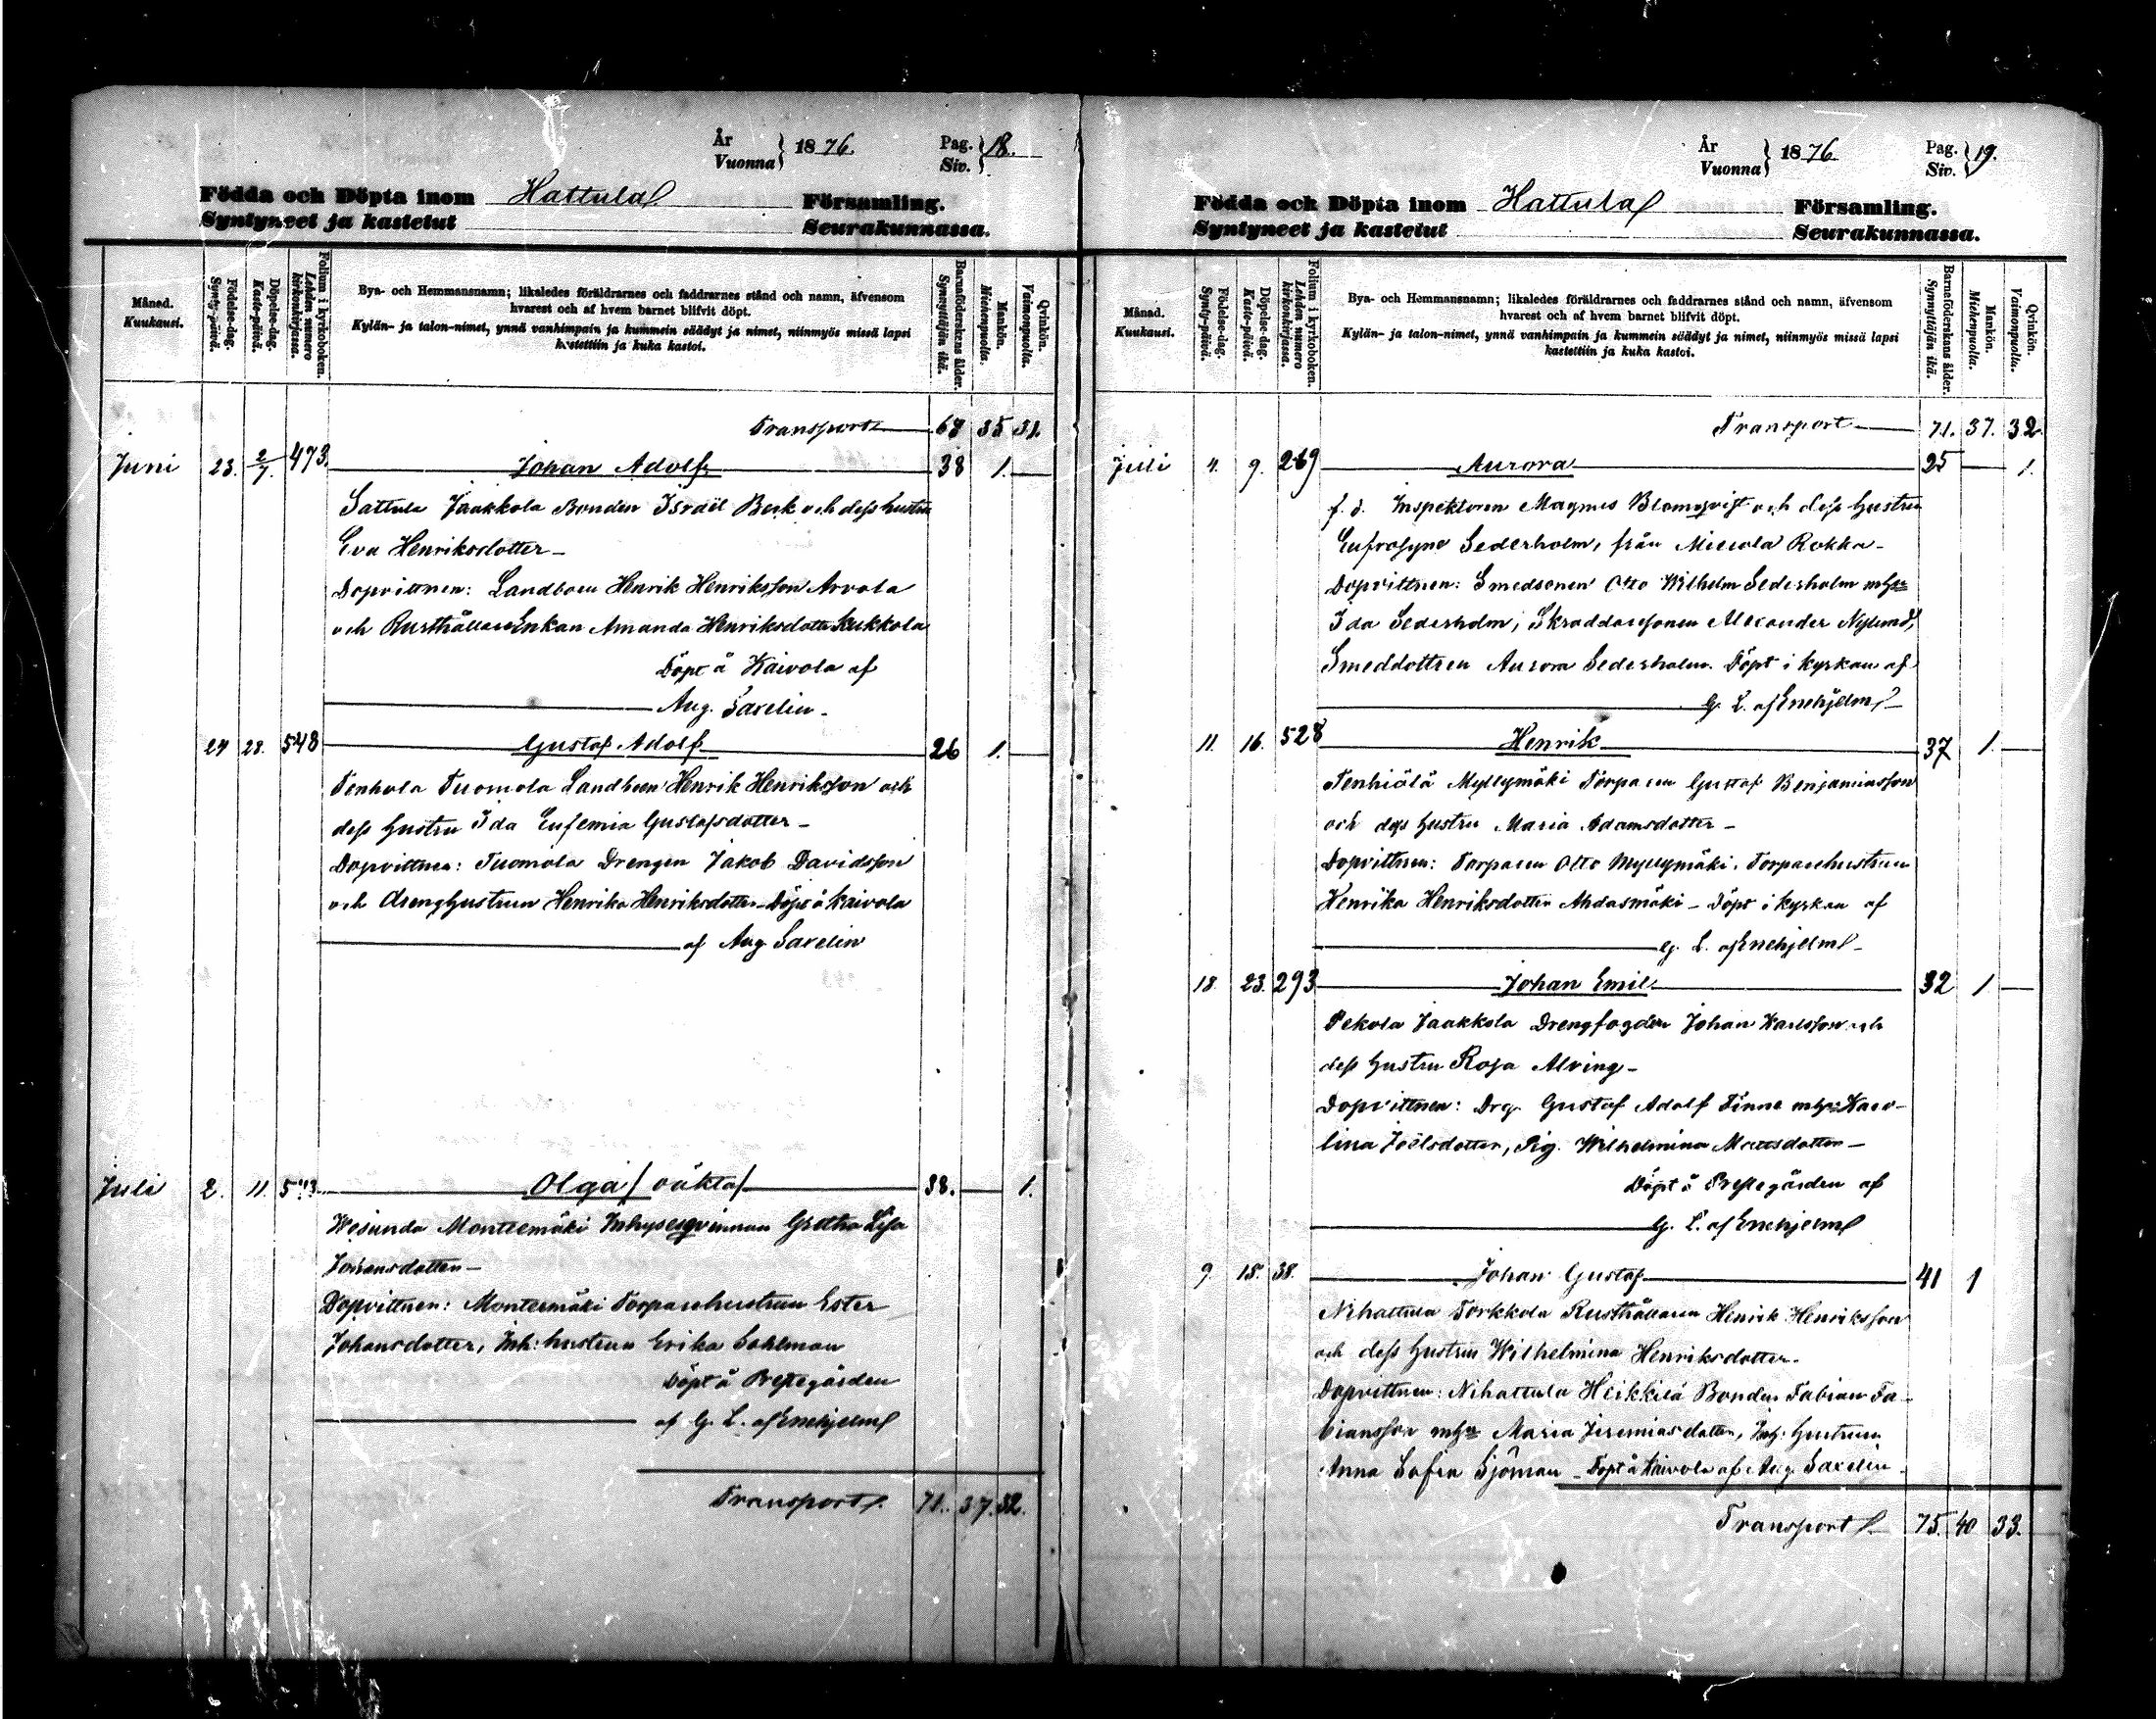 År
Vuonna } 1876. Pag. Siv. } 18.
Födda och Döpta inom Hattula Församling.
Syntyneet ja kastetut Seurakunnassa.
Månad. Kuukausi.
Födelse-dag. Synty-päivä.
Döpelse-dag. Kaste-päivä.
Folium i kyrkoboken. Lehden numero kirkonkirjassa.
Bya- och Hemmansnamn; likaledes föräldrarnes och faddrarnes stånd och namn, äfvensom
hvarest och af hvem barnet blifvit döpt.
Kylän- ja talon-nimet, ynnä vanhimpain ja kummein säädyt ja nimet, niinmyös missä lapsi
kastettiin ja kuka kastoi.
Barnaföderskans ålder. Synnyttäjän ikä.
Mankön. Miehenpuolia.
Qvinkön. Vaimonpuolia.
Transport 35 31.
Juni 23. 2/7. 473. Johan Adolf 38 1.
Sattula Jaakkola Bonden Israël Beck och dess hustru
Eva Henriksdotter
Dopvittnen: Landboen Henrik Henriksson Arvola
och RusthållareEnkan Amanda Henriksdotter Kukkola
Döpt å Kaivola af
Aug. Saxelin.
24 28. 548 Gustaf Adolf 26 1.
Tenhola Tuomola Landboen Henrik Henriksson och
dess hustru Ida Eufemia Gustafsdotter
Dopvittnen: Tuomola Drengen Jakob Davidsson
och drenghustrun Henrika Henriksdotter Döpt å Kaivola
af Aug. Saxelin
Juli 2. 11. Olga / oäkta / 38. 1.
Wesunda Monteemäki Inhysesqvinnan Gretha Lisa
Johansdotter
Dopvittnen: Monteemäki Torparehustrun Ester
Johansdotter, Inh: hustrun Erika Sahlman
Döpt å Prestegården
af G. L. af Enehjelm
Transport. 71. 37. 32.
År
Vuonna } 1876 Pag. Siv. } 19.
Födda och Döpta inom Hattula Församling.
Syntyneet ja kastetut Seurakunnassa.
Månad. Kuukausi.
Födelse-dag. Synty-päivä.
Döpelse-dag. Kaste-päivä.
Folium i kyrkoboken. Lehden numero kirkonkirjassa.
Bya- och Hemmansnamn; likaledes föräldrarnes och faddrarnes stånd och namn, äfvensom
hvarest och af hvem barnet blifvit döpt.
Kylän- ja talon-nimet, ynnä vanhimpain ja kummein säädyt ja nimet, niinmyös missä lapsi
kastettiin ja kuka kastoi.
Barnaföderskans ålder. Synnyttäjän ikä.
Mankön. Miehenpuolia.
Qvinkön. Vaimonpuolia.
Transport 71. 37. 32.
Juli 4. 9. 269 Aurora 25 1.
f. d. Inspektoren Magnus Blomqvist och dess hustru
Eufrosyne Sederholm, från Mierola Rokka
Dopvittnen: Smedsonen Otto Wilhelm Sederholm
Ida Sederholm, Skräddaresonen Alexander Nylund,
Smeddottren Aurora Sederholm. Döpt i kyrkan af
G. L. af Enehjelm
11. 16. 528 Henrik 37 1.
Tenhiälä Myllymäki Torparen Gustaf Benjaminsson
och dess hustru Maria Adamsdotter
Dopvittnen: Torparen Otto Myllymäki. Torparehustrun
Henrika Henriksdotter Ahdasmäki Döpt i kyrkan af
G. L. af Enehjelm
18. 23. 293 Johan Emil 32 1
Pekola Jaakkola Drengfogden Johan Karlsson och
dess hustru Rosa Alving
Dopvittnen: Drg. Gustaf Adolf Finne mhu: Karo-
lina Joëlsdotter, Pig. Wilhelmina Mattsdotter
Döpt å Prestegården af
G. L. af Enehjelm
9. 15. 38. Johan Gustaf 41 1
Nihattula Torkkola Rusthållaren Henrik Henriksson
och dess hustru Wilhelmina Henriksdotter.
Dopvittnen: Nihattula Heikkilä Bonden Fabian Fa-
biansson Maria Jeremiasdotter, Inh: hustrun
Anna Sofia Sjöman Döpt å Kaivola af Aug. Saxelin
Transport 75. 40 33.